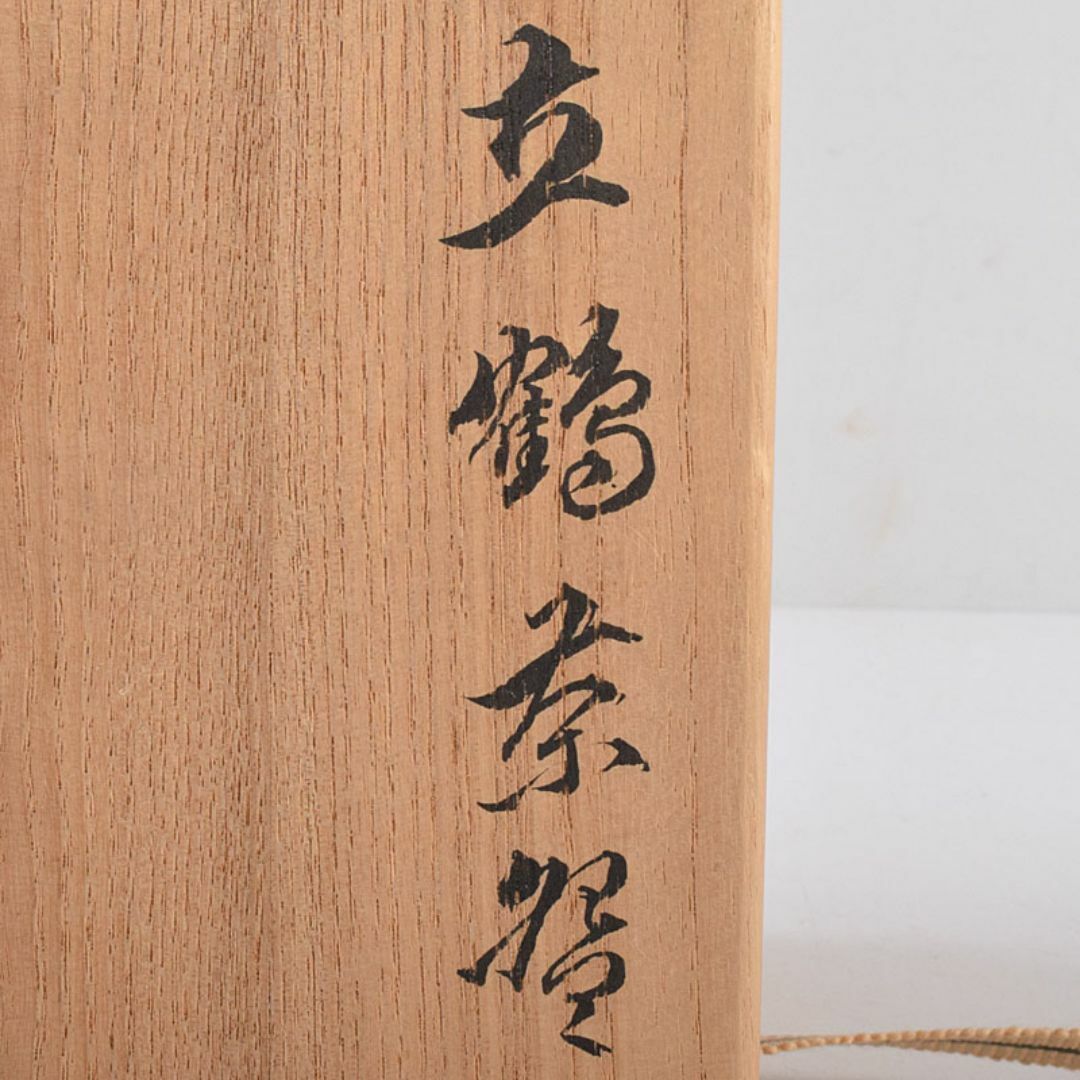 立鶴茶碗